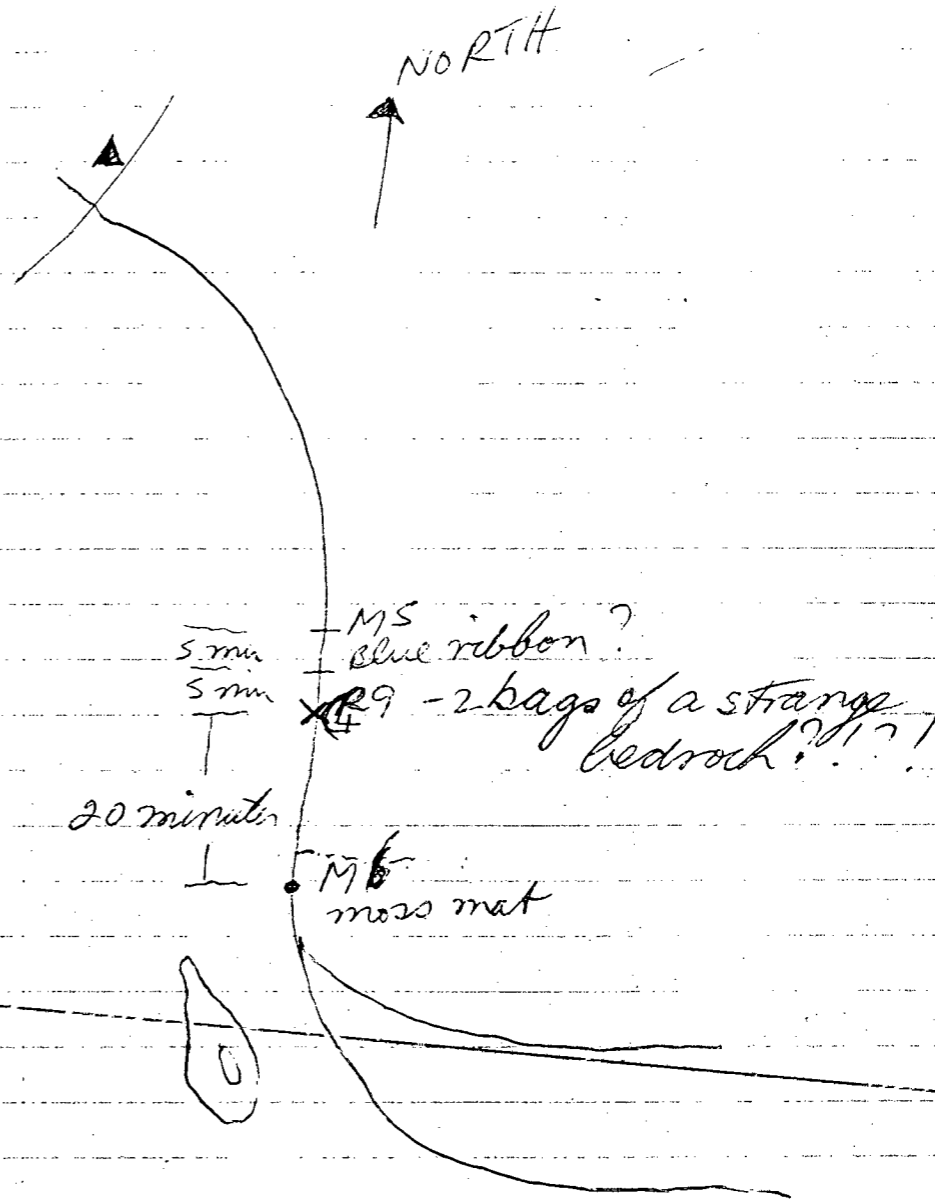 NORTH
M5
5 min
Blue ribbon?
5 min
R9 - 2 bags of a strange
bedrock?!?!
20 minutes
M6
moss mat